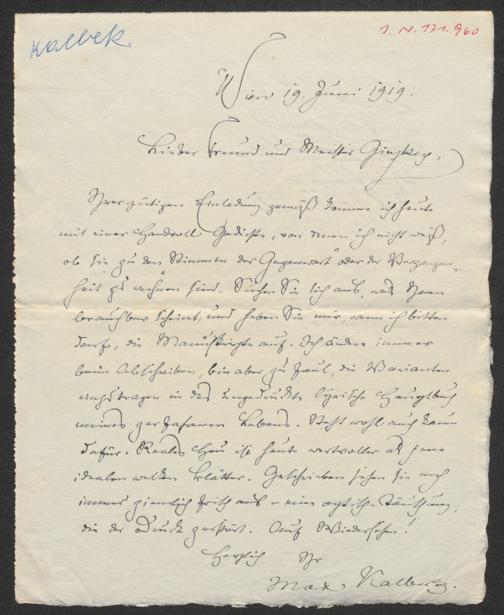 Kalbek
I. N. 171.960
Wien 19. Juni 1919.
Lieber Freund und Meister Ginzkey,
Ihrer gütigen Einladung gemäß komme ich heute
mit einer Handvoll Gedichte, von denen ich nicht weiß,
ob sie zu den Stimmen der Gegenwart oder der Vergangen-
heit zu rechnen sind. Suchen Sie sich aus, was Ihnen
brauchbar scheint, und heben Sie mir, wenn ich bitten
darf, die Manuskripte auf. Ich ändere immer
beim Abschreiben, bin aber zu faul, die Varianten
nachzutragen in das ungedruckte lyrische Hauptbuch
meines zerfahrenen Lebens. Steht wohl auch kaum
dafür. Reales Heu ist heute wertvoller als jene
idealen welken Blätter. Geschrieben sehen sie noch
immer ziemlich frisch aus – eine optische Täuschung,
die der Druck zerstört. Auf Wiedersehen!
Herzlich Ihr
Max Kalbeck.